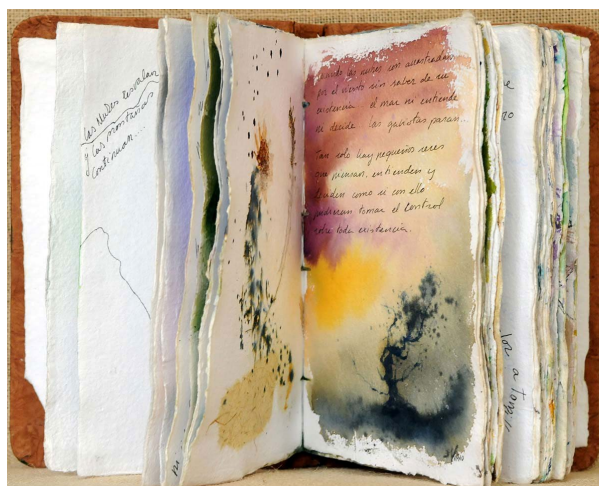 las nubes resbalan
y las montañas
continuan....
cuando las nubes son arrastradas
por el viento sin saber de su
existencia el mar ni entiende
ni decide las gaviotas pasan...
Tan solo hay pequeños seres
que piensan, entienden y
como si con ello
pudieran tomar el control
sobre toda existencia.
e
no